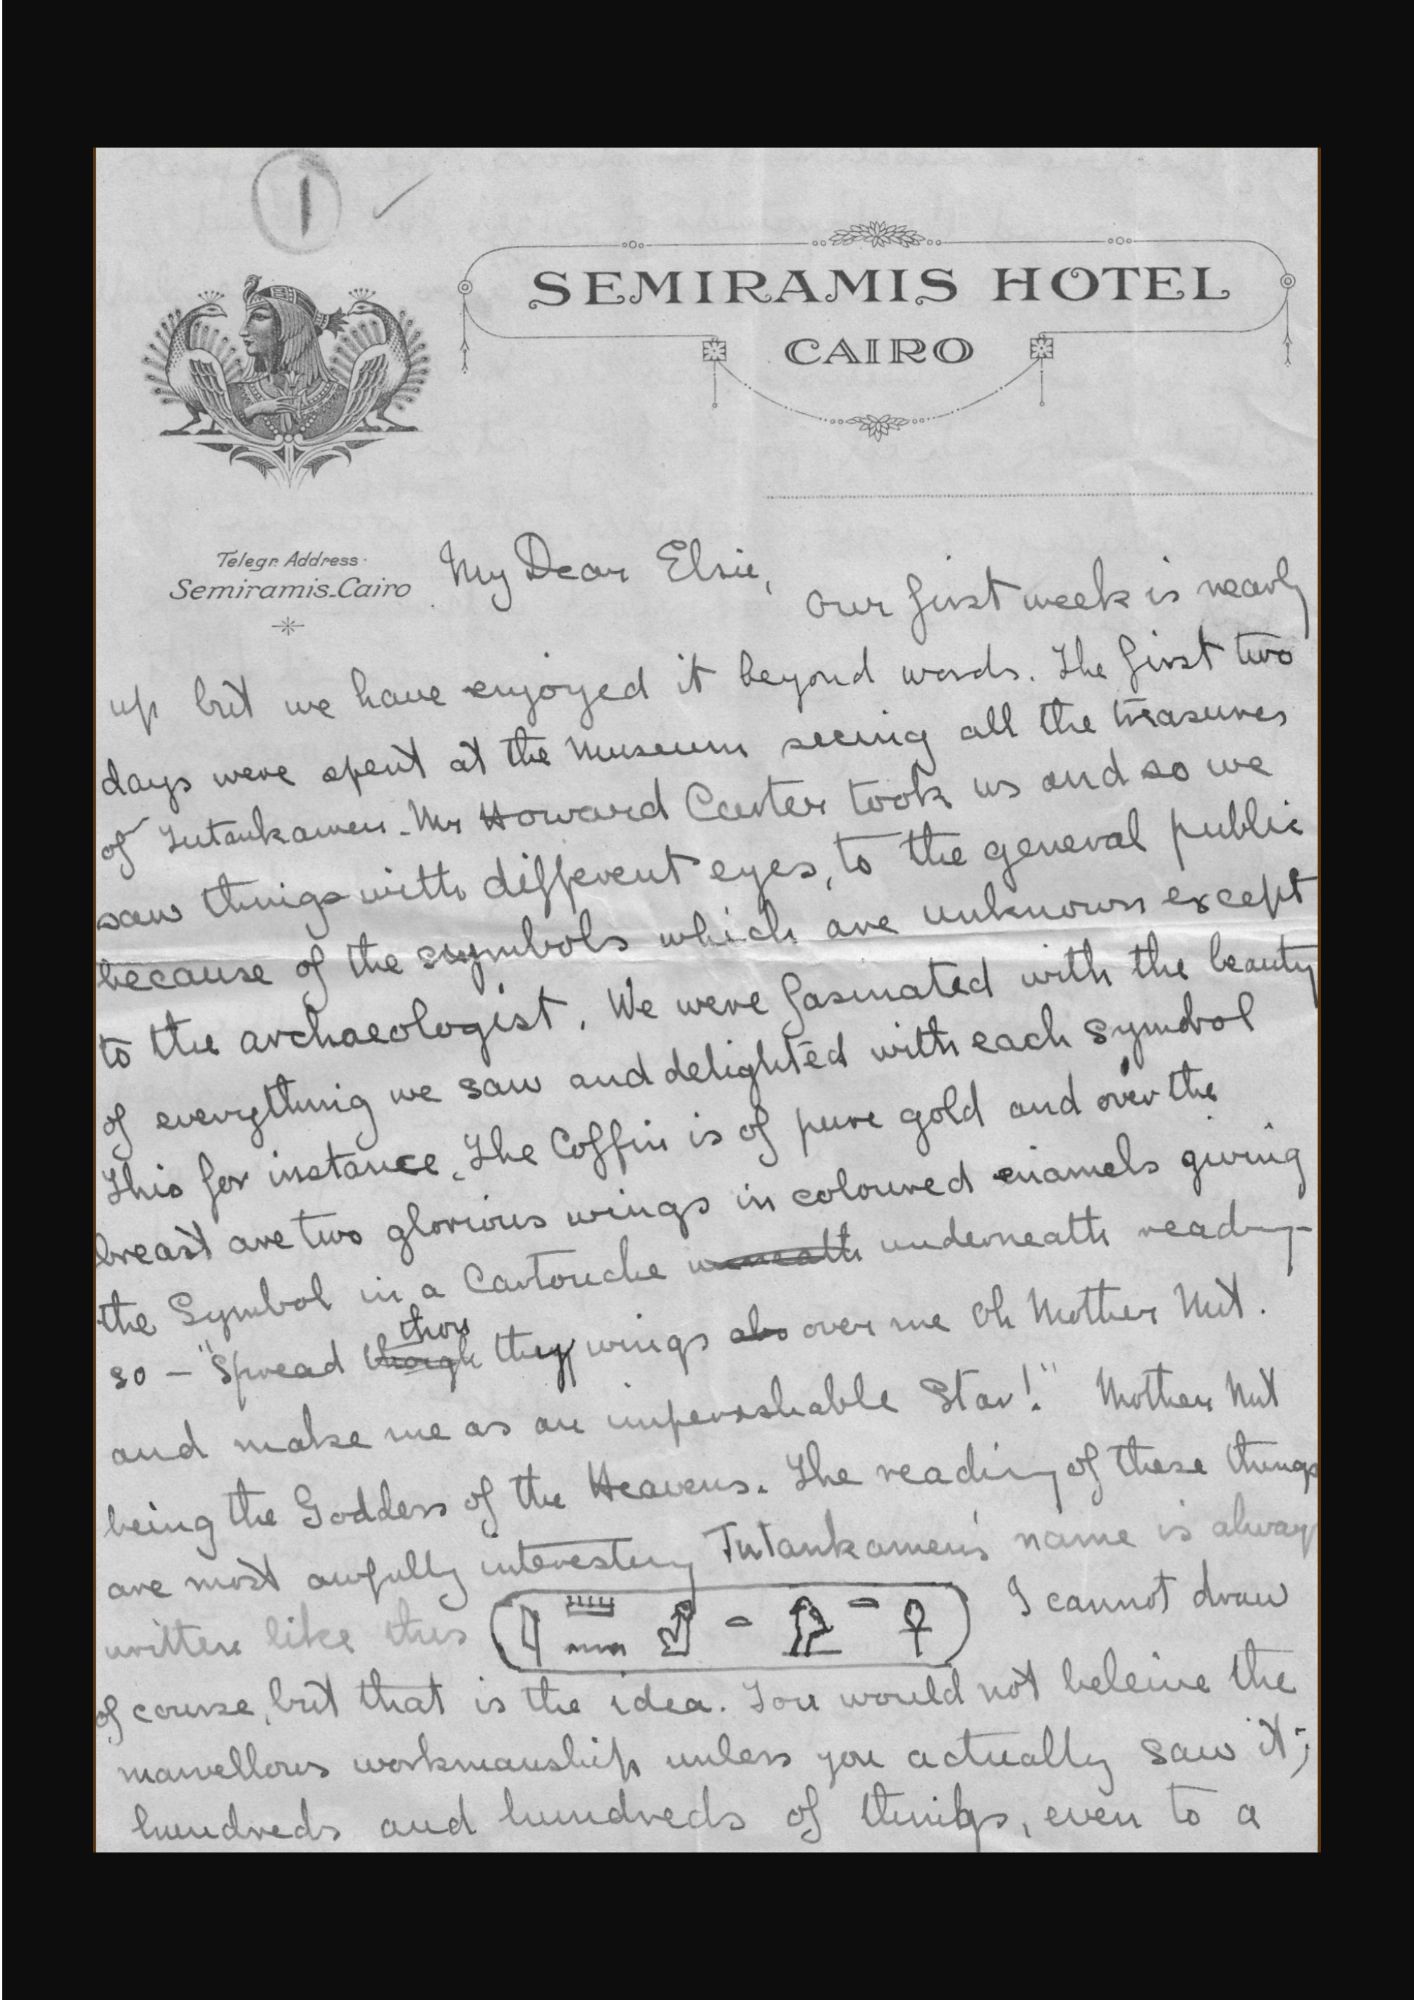 1
SEMIRAMIS HOTEL
CAIRO
Telegr. Address
Semiramis-Cairo
My Dear Elsie,
Our first week is nearly
up but we have enjoyed it beyond words. The first two
days were spent at the Museum seeing all the treasures
of Tutankamen. Mr Howard Carter took us and so we
saw things with different eyes, to the general public
because of the symbols which are unknown except
to the archaeologist. We were fasinated with the beauty
of everything we saw and delighted with each symbol
This for instance. The Coffin is of pure gold and over the
breast are two glorious wings in coloured enamels giving
the Symbol in a Cartouche underneath reading-
so - "Spread though thou they wings also over me Oh Mother Nut.
and make me as an imperishable Star!" Mother Nut
being the Goddess of the Heavens. The reading of these things
are most awfully interesting Tutankamen's name is always
written like this I cannot draw
of course, but that is the idea. You would not beleive the
marvellous workmanship unless you actually saw it;
hundreds and hundreds of things, even to a